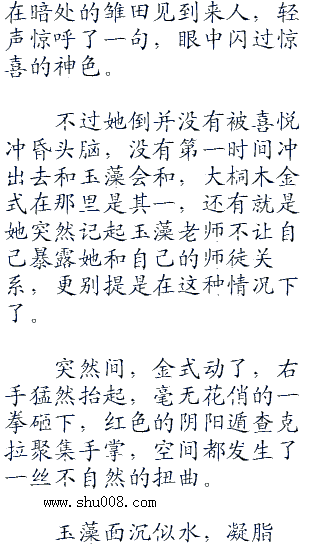 在暗处的雏田见到来人，轻
声惊呼了一句，眼中闪过惊
喜的神色。
不过她倒并没有被喜悦
冲昏头脑，没有第一时间冲
出去和玉藻会和，大桐木金
式在那里是其一，还有就是
她突然记起玉藻老师不让自
己暴露她和自己的师徒关
系，更别提是在这种情况下
了。
突然间，金式动了，右
手猛然抬起，毫无花俏的一
拳砸下，红色的阴阳遁查克
拉聚集手掌，空间都发生了
一丝不自然的扭曲。
www.shu008.com
玉藻面沉似水，凝脂